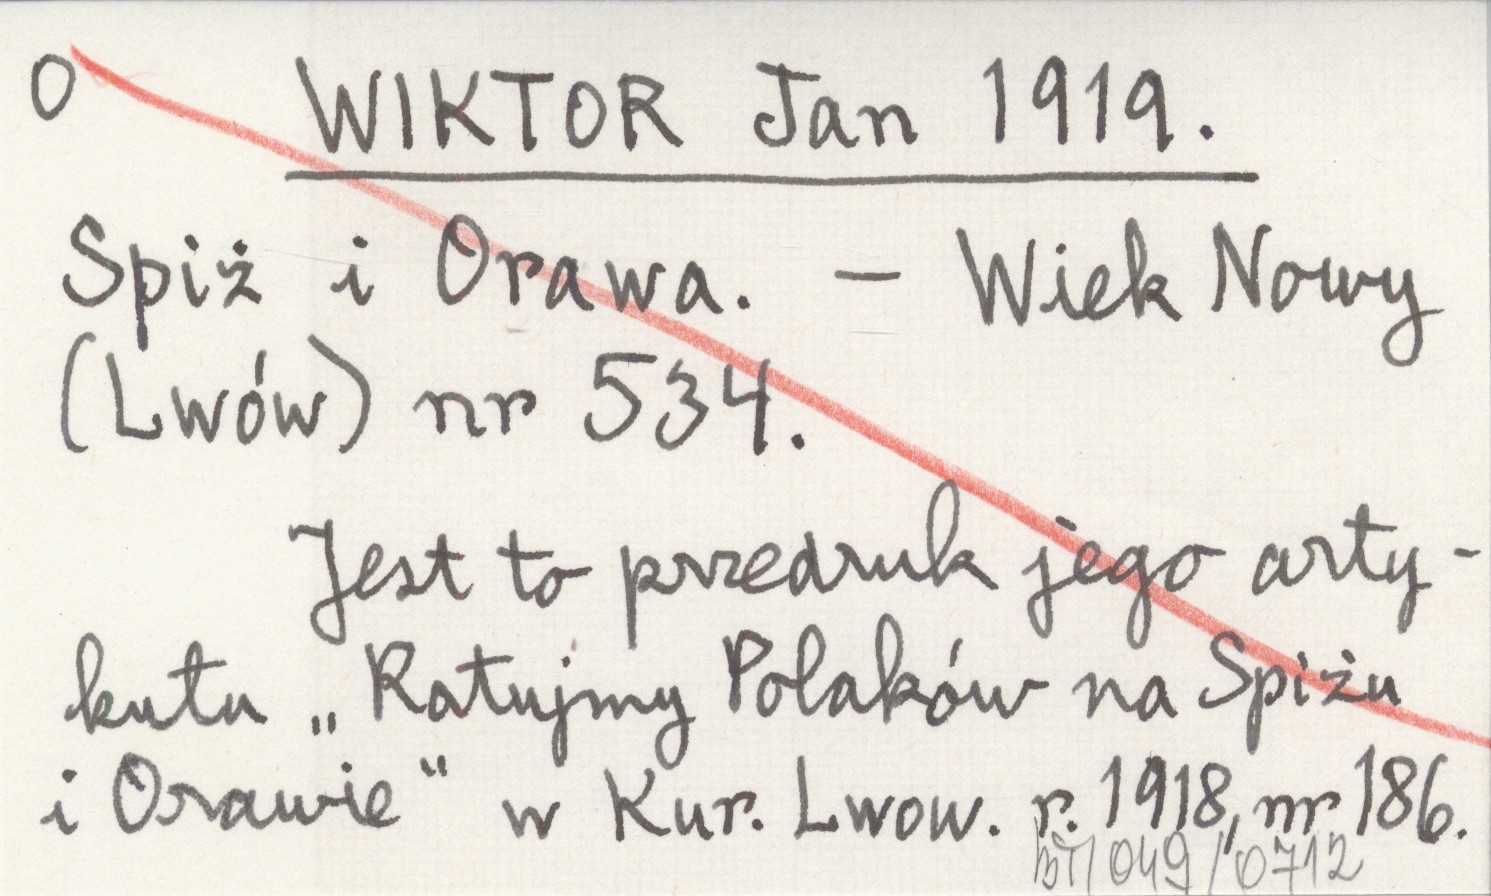 O WIKTOR Jan 1919.
Spiż i Orawa. – Wiek Nowy
(Lwów) nr 534.
Jest to przedruk jego arty-
kułu „Ratujmy Polaków na Spiżu
i Orawie“ w Kur. Lwow. r. 1918, nr 186.
049/0712